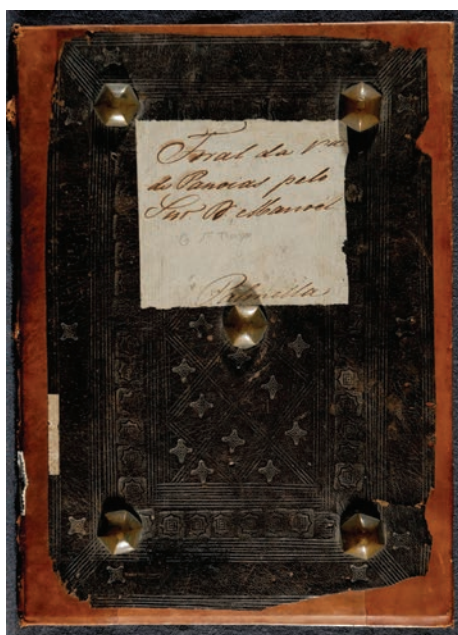 Foral da V.ª
de Panoias pelo
Snr. D. Manoel
Palmella